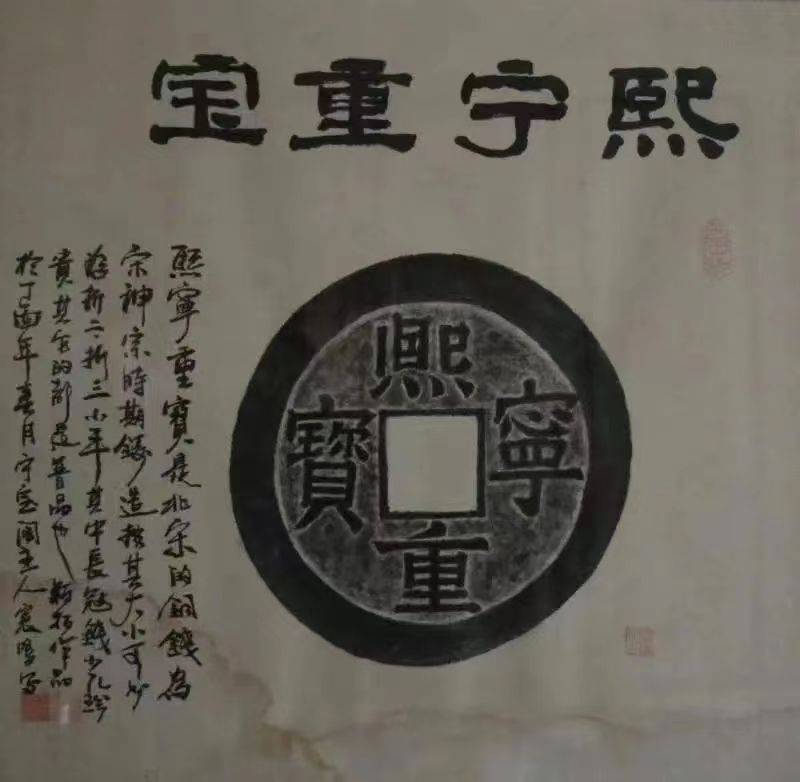 熙宁重宝
熙寧重寶
熙寧重寶是北宋的銅錢為
宋神宗時期鑄造按其大小可以
折二折三小平其中長冠錢少見珍
貴其它的都是普品也 新拓作品
於丁酉年春月守宝閣主人